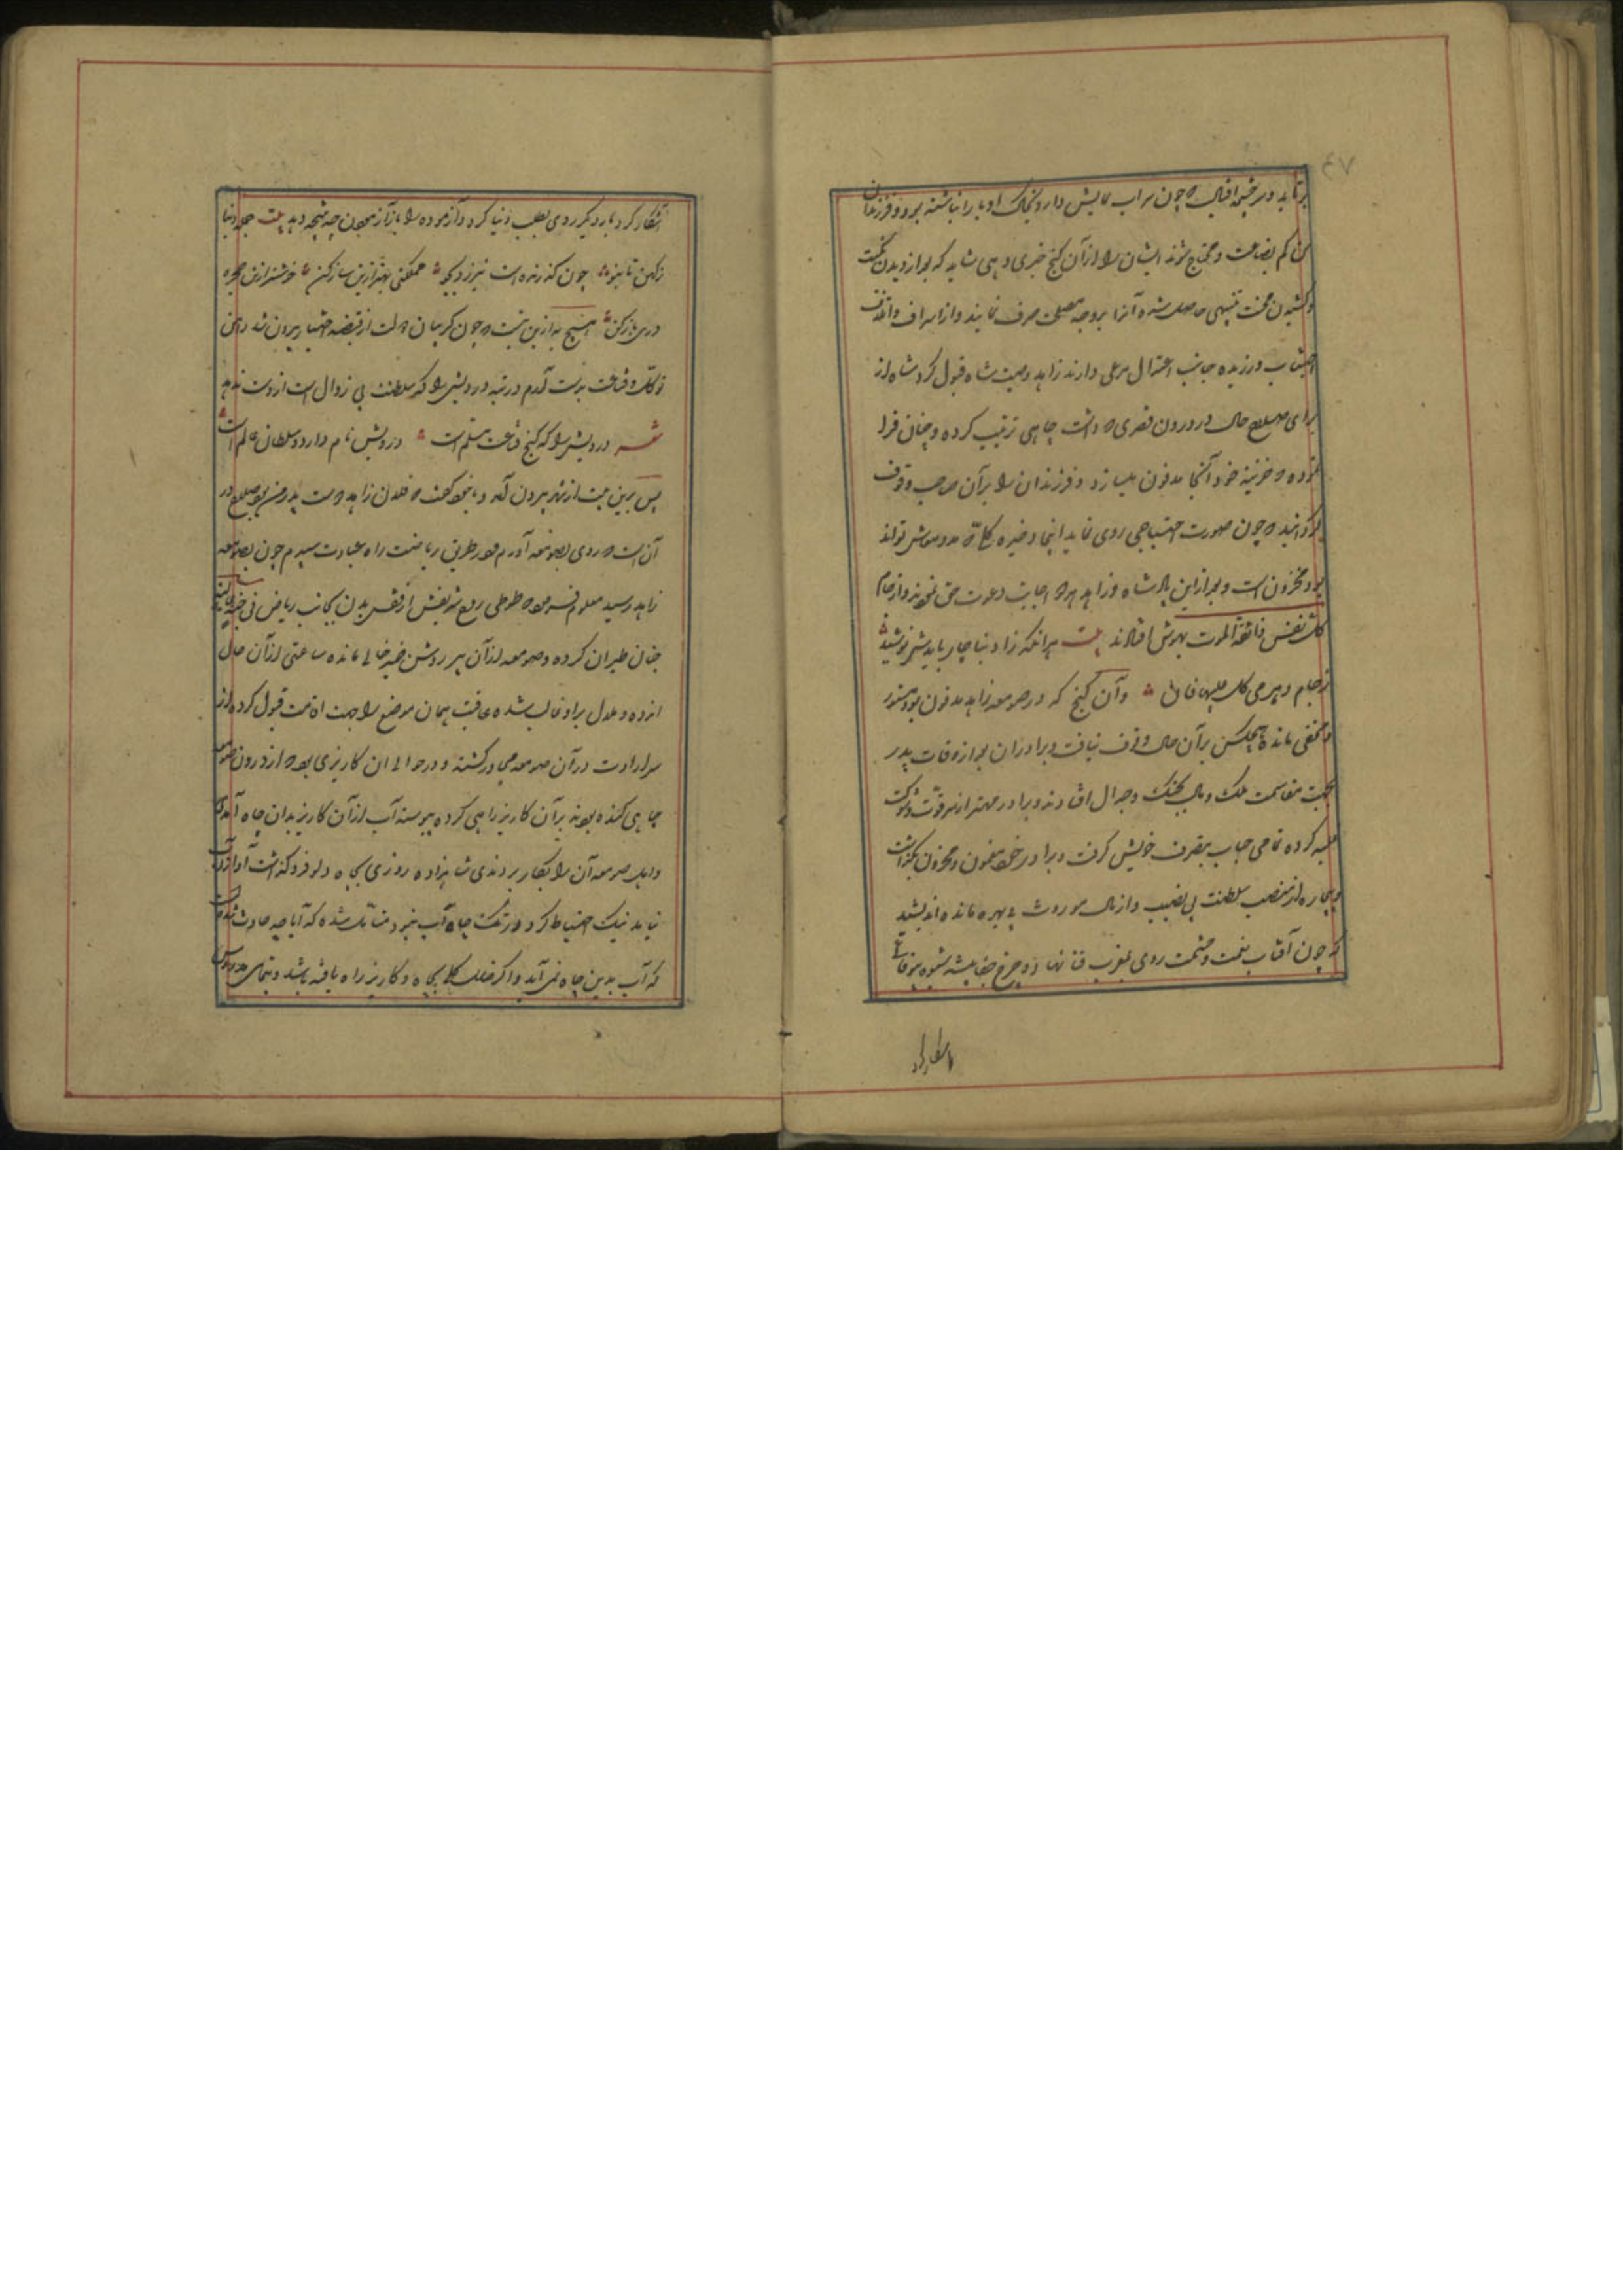 برتابد و سرچشمه اقبال که چون سراب نمایش دارد بخاک ادبار انباشته بود و فرزندان
من کم بضاعت و محتاج شوند ایشان را از آن گنج خبری دهی شاید که بعد از دیدن نکبت
و کشیدن محنت تنبیهی حاصل شده آنرا بر وجه مصلحت صرف نمایند و از اسراف و اتلاف
اجتناب ورزیده جانب اعتدال مرعی دارند زاهد وصیت شاه قبول کرد و شاه از
برای مصلحت حال در درون قصری که داشت چاهی ترتیب کرده و چنان فرا
نموده که خزینه خود آنجا مدفون میسازد و فرزندان را بر آن صاحب وقوف
گردانید که چون صورت احتیاجی روی نماید اینجا ذخیره که مدد معاش تواند
بود مخزون است و بعد از این پادشاه و زاهد هر دو اجابت دعوت حق نموده از جام
کل نفس ذائقة الموت بیهوش افتادند بیت هر آنکه زاد بناچار بایدش نوشید
ز جام دهر می کل من علیها فان و آن گنج که در صومعه زاهد مدفون بود مستور
و مخفی مانده هیچکس بر آن حال وقوف نیافت و برادران بعد از وفات پدر
بجهت مقاسمت ملک و مال بجنگ و جدال افتادند و برادر مهتر از سر قوت و شوکت
غلبه کرده تمامی جهات بتصرف خویش گرفت و برادر خرد مغبون و محزون بگذاشت
بیچاره از منصب سلطنت بی نصیب و از مال موروث بی بهره مانده اندیشید
که چون آفتاب نعمت و حشمت روی بمغرب فنا نهاد و چرخ جفا پیشه شیوه بیوفائی
آشکار کرد
آشکار کرد بار دیگر روی بطلب دنیا کردن و آزموده را باز آزمودن چه نتیجه دهد بیت جمله دنیا
ز کهن تا بنو چون گذرنده است نیرزد بجو مملکتی بهتر ازین ساز کن خوشتر ازین حجره
دری باز کن هیچ به ازین نیست که چون گریبان دولت از قبضه اختیار بیرون شد دامن
توکل و قناعت بدست آرم و رتبه درویشی را که سلطنت بی زوال است از دست ندهم
شعر درویش را که کنج قناعت مسلم است درویش نام دارد و سلطان عالم است
پس برین نیت از شهر بیرون آمد و با خود گفت که فلان زاهد دوست پدر من بود صلاح در
آن است که روی بصومعه او آرم و در طریق ریاضت راه عبادت سپرم چون بصومعه
زاهد رسید معلوم فرمود که طوطی روح شریفش از قفس بدن بجانب ریاض فی جنة عالیة
جنان طیران کرده و صومعه از آن پیر روشن ضمیر خالی مانده ساعتی از آن حال
اندوه و ملال بر او غالب شده عاقبت همان موضع را جهت اقامت قبول کرده از
سر ارادت در آن صومعه مجاور گشت و در حوالی آن کاریزی بود که از درون صومعه
چاهی کنده بودند و بر آن کاریز راهی کرده پیوسته آب از آن کاریز بدان چاه آمدی
و اهل صومعه آن را بکار بردندی شاهزاده روزی بچاه دلو فرو گذاشت آواز آب
نیامد نیک احتیاط کرد در تک چاه آب نبود متأمل شده که آیا چه حادث شده است
که آب بدین چاه نمی آید و اگر خلل کلی بچاه و کاریز راه یافته باشد و بتمامی مدروس